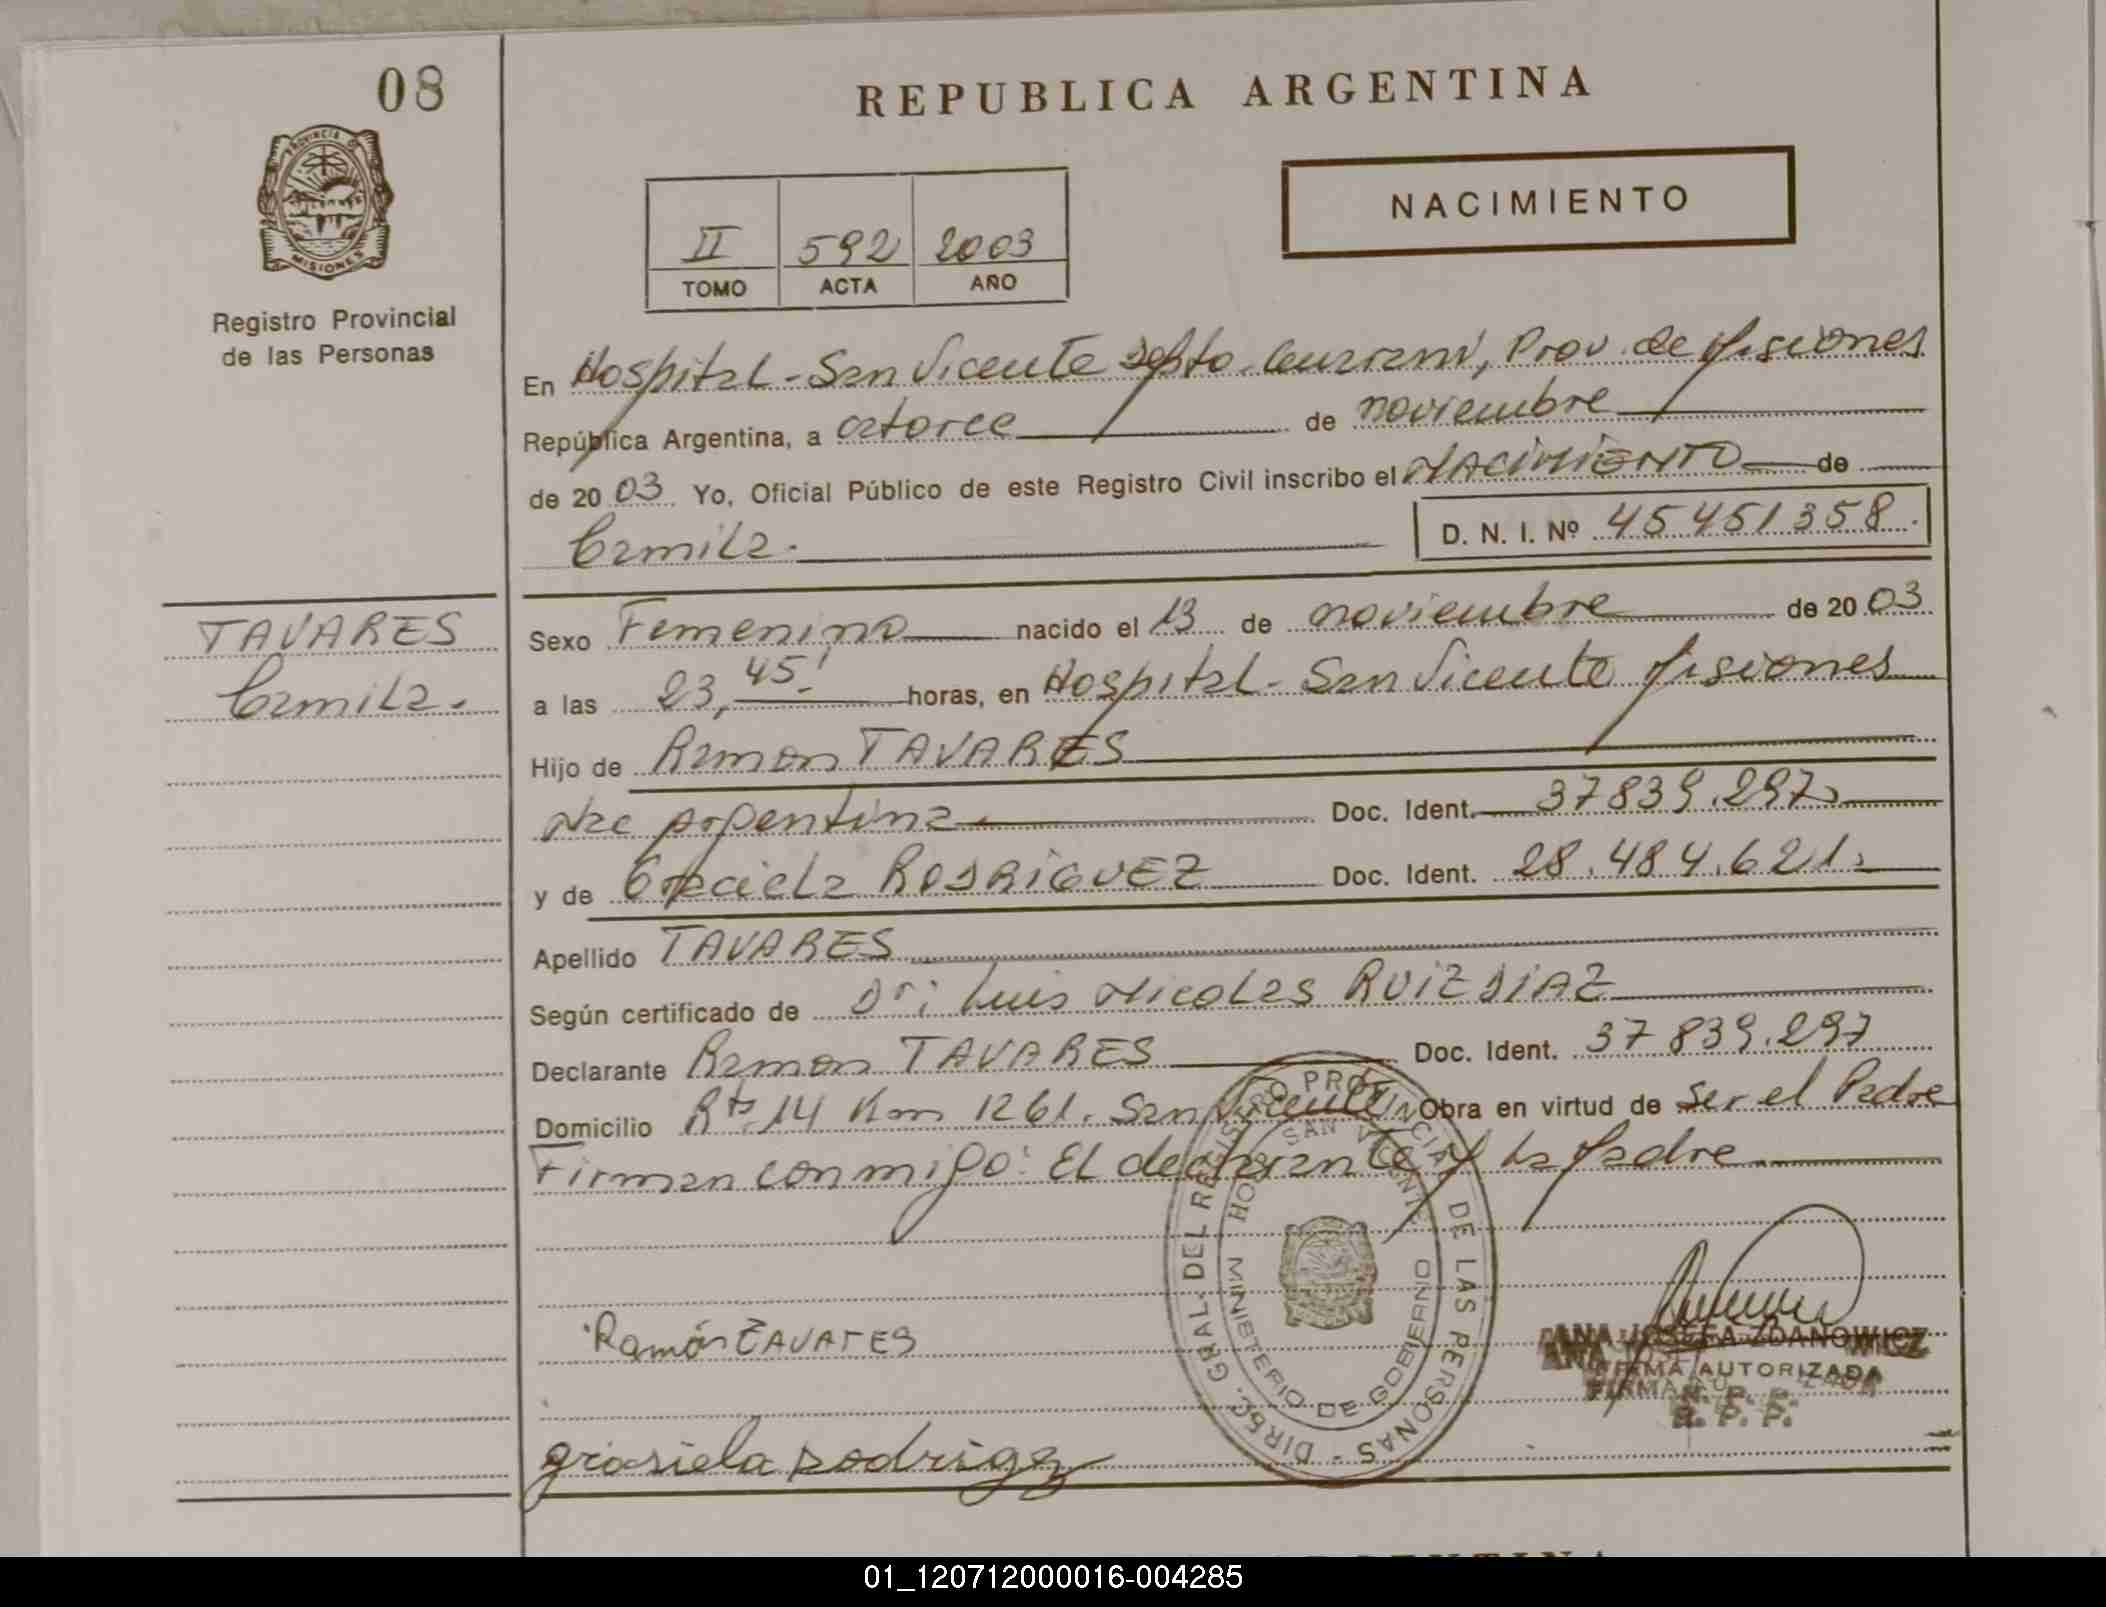 08
REPUBLICA ARGENTINA
PROVINCIA DE
MISIONES
NACIMIENTO
II 592 2003
TOMO ACTA AÑO
Registro Provincial
de las Personas
En Hospital - San Vicente Depto. Guarani, Prov. de Misiones
República Argentina, a catorce de noviembre
de 2003 Yo, Oficial Público de este Registro Civil inscribo el NACIMIENTO de
Camila. D. N. I. Nº 45451358.
TAVARES
Camila.
Sexo Femenino nacido el 13 de noviembre de 2003
a las 23,45' horas, en Hospital - San Vicente Misiones
Hijo de Ramon TAVARES
Nac Argentina Doc. Ident. 37839.297
y de Graciela RODRIGUEZ Doc. Ident. 28.484.621
Apellido TAVARES
Según certificado de Dr: Luis Nicolas RUIZ DIAZ
Declarante Ramon TAVARES Doc. Ident. 37839.297
Domicilio Rta. 14 Km 1261. San Vicente Obra en virtud de ser el Padre
Firman conmigo: El declarante y la Madre
DIREC. GRAL. DEL REGISTRO PROVINCIAL DE LAS PERSONAS
HOSP. SAN VICENTE
MINISTERIO DE GOBIERNO
Ramón TAVARES
ANA JOSEFA ZDANOWICZ
FIRMA AUTORIZADA
R. P. P.
grasiela rodrigez
01_120712000016-004285